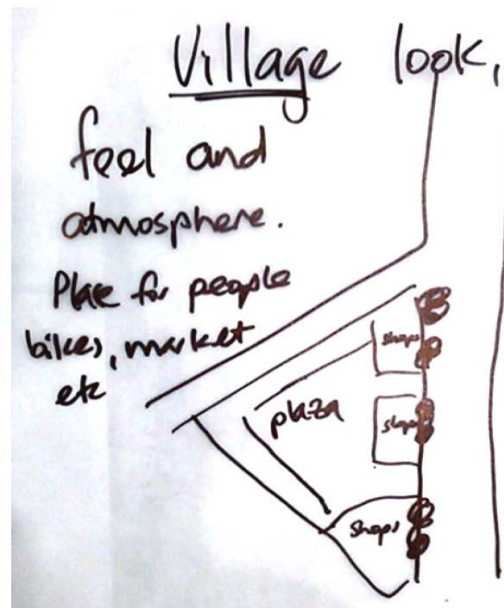 Village look,
feel and
atmosphere.
Place for people
bikes, market
etc
shops
plaza
shops
shops